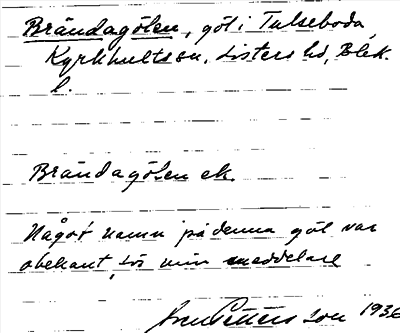 Brändagölen, göl i Tulseboda,
Kyrkhults sn, Listers hd, Blek.
l.
Brändagölen ek.
Något namn på denna göl var
obekant för min meddelare
Sven Petterson 1936